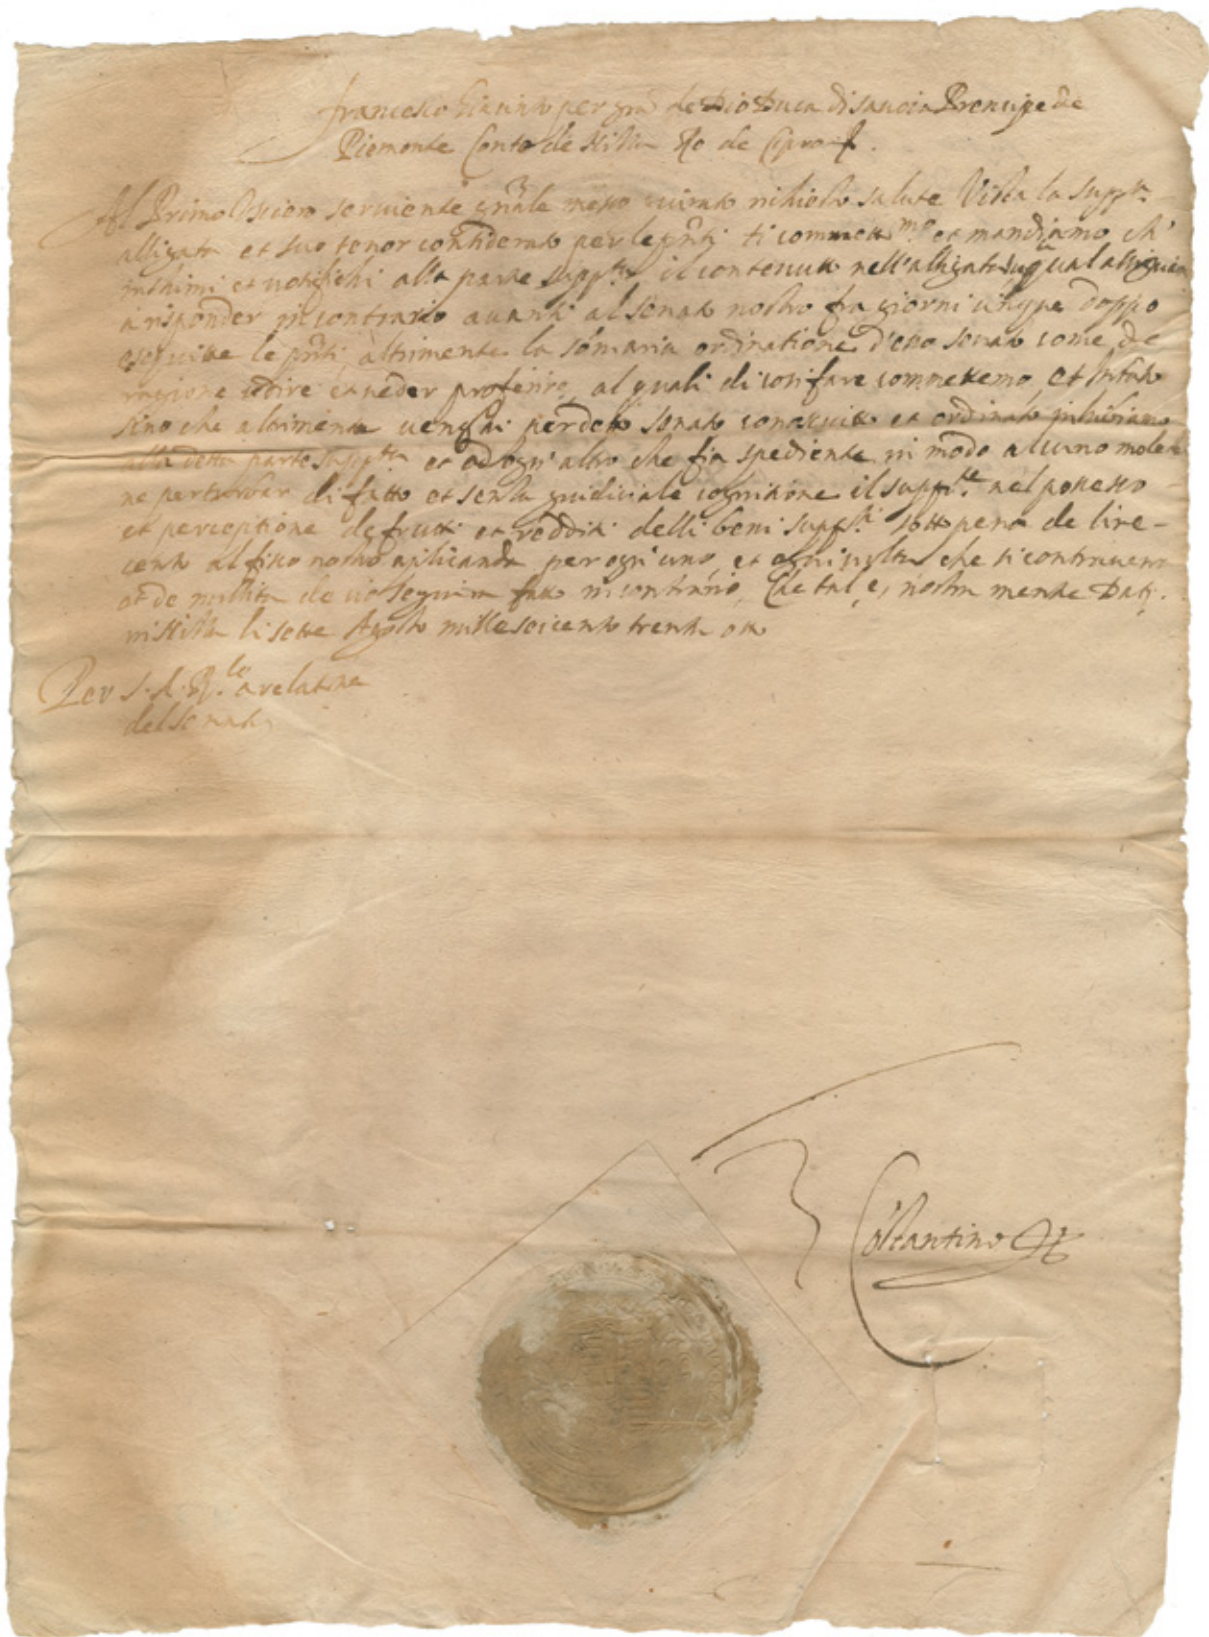 francesco Giacinto per gra de Dio Duca di sauoia Prencipe de
Piemonte Conte de Nissa Re de Cipro
Al Primo serviente gnale messo giurato richiesto salute Vista la suppta
alligata et suo tenor considerato per le pnti ti comett et mandiamo ch'
inthimi et notifichi alla parte suppta il contenuto nell'alligata
à risponder in contrario auanti al senato nostro fra giorni cinque doppo
esequite le pnti altrimente la somaria ordinatione d'esso senato come de
ragione udire et ueder proferire, al quali di cosi fare commettemo, et
sino che altrimente uenghi per detto senato conosciuto et ordinato inhibiamo
alla detta parte suppta et ad ogn' altro che sia spediente in modo alcuno molest
ne perturbar di fatto et senza giudiciale cognitione il suppte nel possesso
et perceptione de frutti et redditi delli beni suppti sotto pena de lire
cento al fisco nostro aplicanda per ogn' uno et ogni uolta che si contrauenra
et de nullita de cio seguira fatto in contrario, Che tal e, nostra mente Dat.
in Nissa li sette Agosto mille seicento trenta otto
Per S. A. R. a relatne
del senato
Costantino